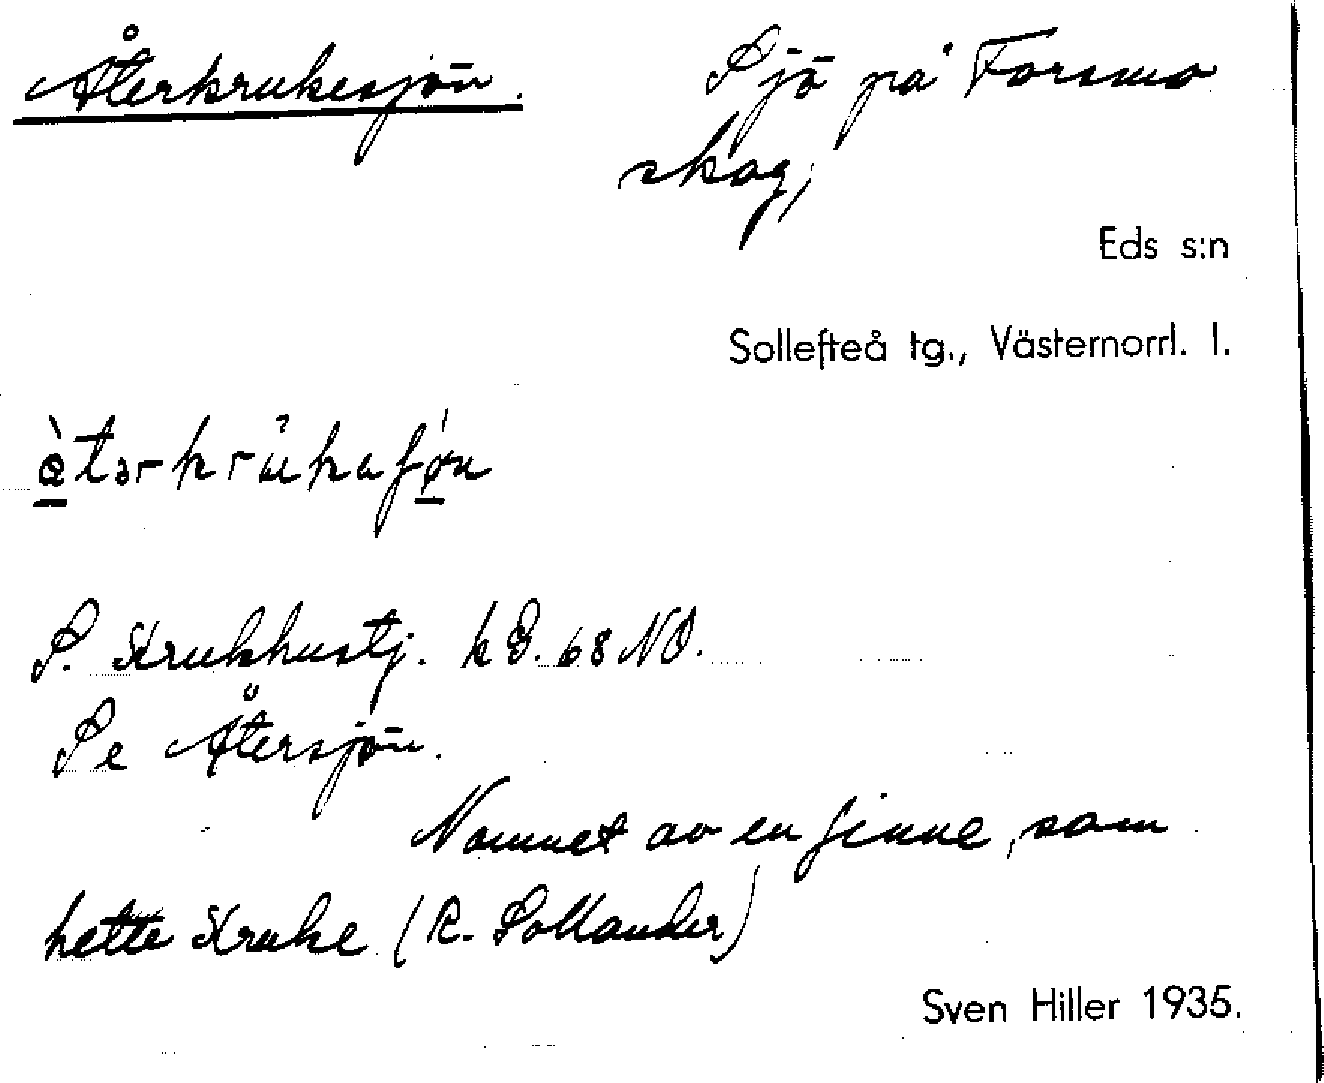 Återkrukesjön. Sjö på Forsmo
skog,
Eds s:n
Sollefteå tg., Västernorrl. l.
S. Krukhustj. kB. 68 NO.
Se Återsjön.
Namnet av en finne, som
hette Kruke (R. Sollander)
Sven Hiller 1935.